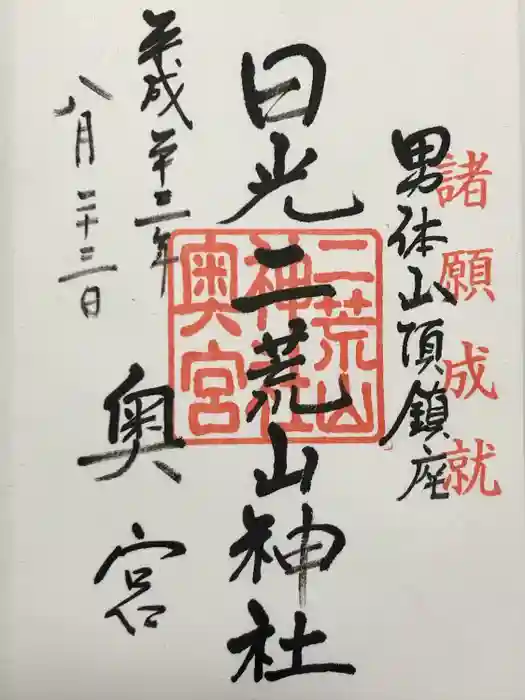 諸願成就
男体山頂鎮座
日光二荒山神社
二荒山
神社
奥宮
奥宮
平成二十三年
八月二十三日